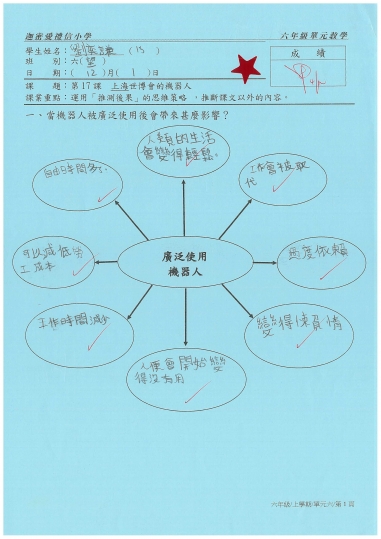 迦密愛禮信小學
六年級單元教學
學生姓名： (13)
班別：六(望)
日期：(12)月(1)日
成績
課題：第17課 上海世博會的機器人
課業重點：運用「推測後果」的思維策略，推斷課文以外的內容。
一、當機器人被廣泛使用後會帶來甚麼影響？
人類的生活
會變得輕鬆
自由時間多了
工作會被取
代
可以減低勞
工成本
廣泛使用
機器人
過度依賴
工作時間減少
變得沒責情
人便會開始變
得沒有用
六年級/上學期/單元六/第1頁